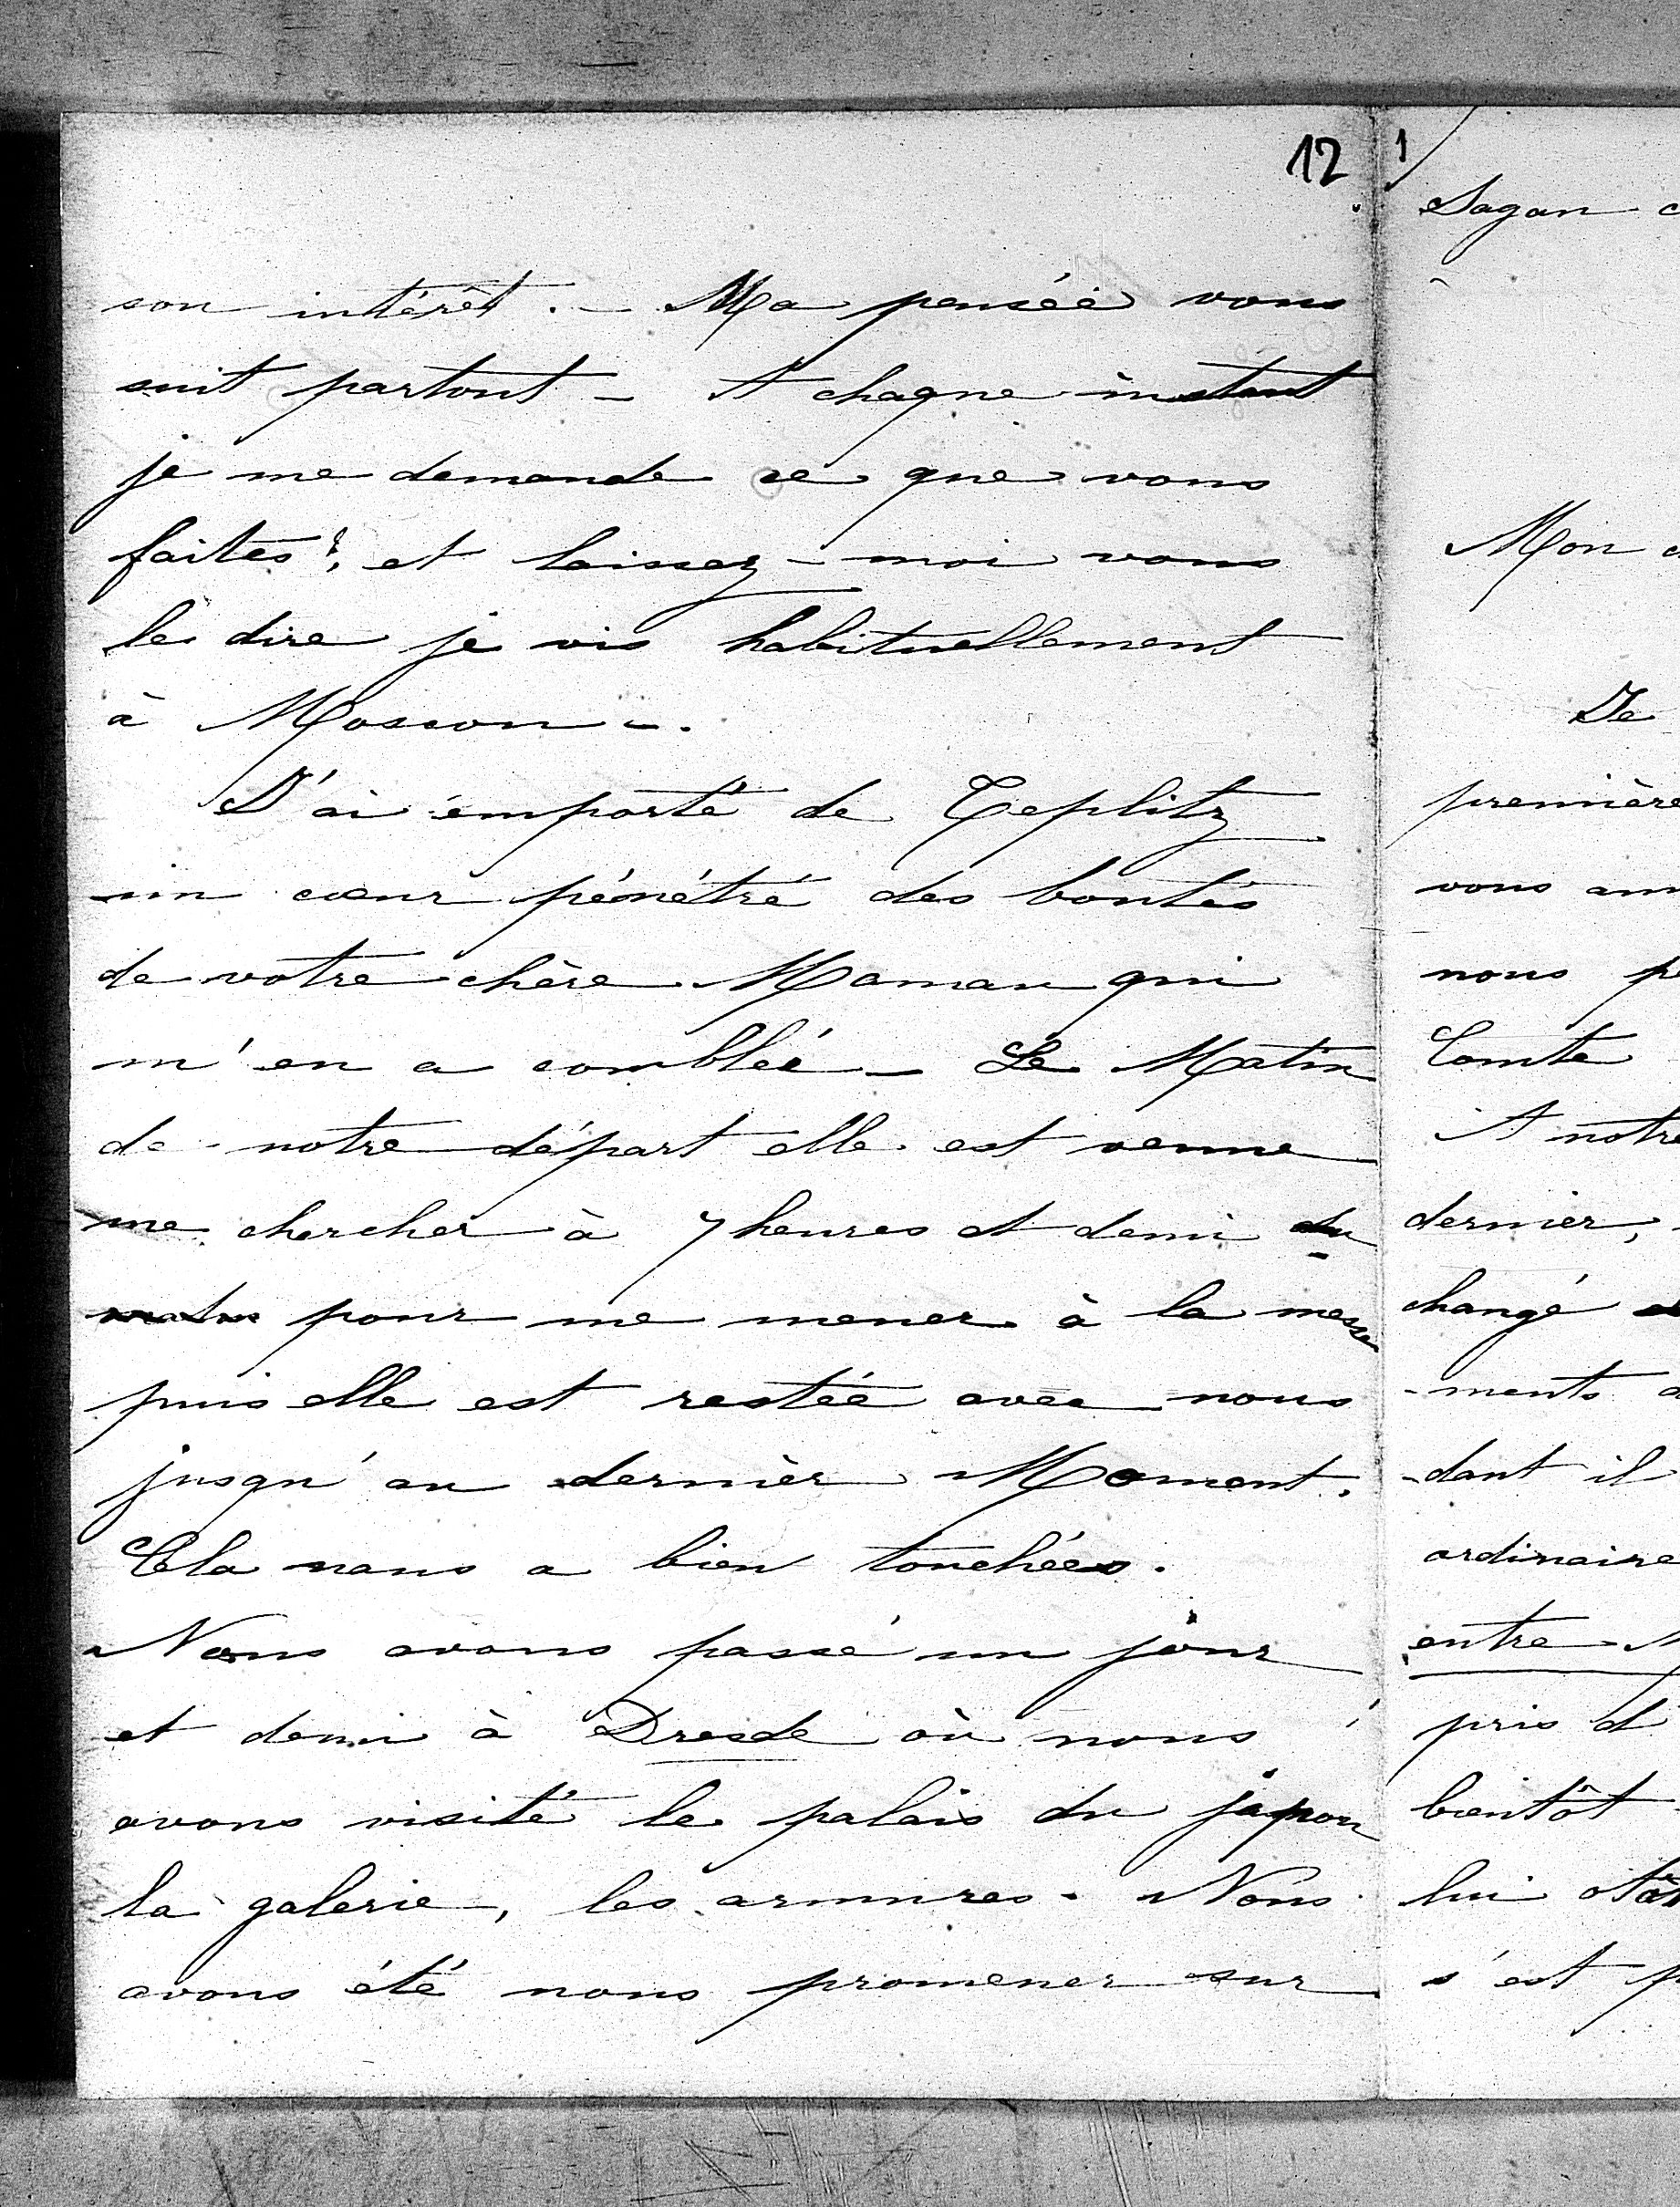 12
son intérêt. - Ma pensée vous
suit partout - A chaque instant
je me demande ce que vous
faites?, et laissez-moi vous
le dire je vis habituellement
à Moscou -.
J'ai emporté de Teplitz
un cœur pénétré des bontés
de votre chère Maman qui
m'en a comblée - Le Matin
de notre départ elle est venue
me chercher à 7 heures et demi du
matin pour me mener à la messe
puis elle est restée avec nous
jusqu'au dernier Moment.
Cela nous a bien touchées.
Nous avons passé un jour
et demi à Dresde où nous
avons visité le palais du japon
la galerie, les armures. Nous
avons été nous promener sur
1
Sagan
Mon
Je
première
vous
nous
Comte
A notre
dernier,
changé
-ments
-dant il
ordinaire
entre
pris d
bientôt
lui
s'est